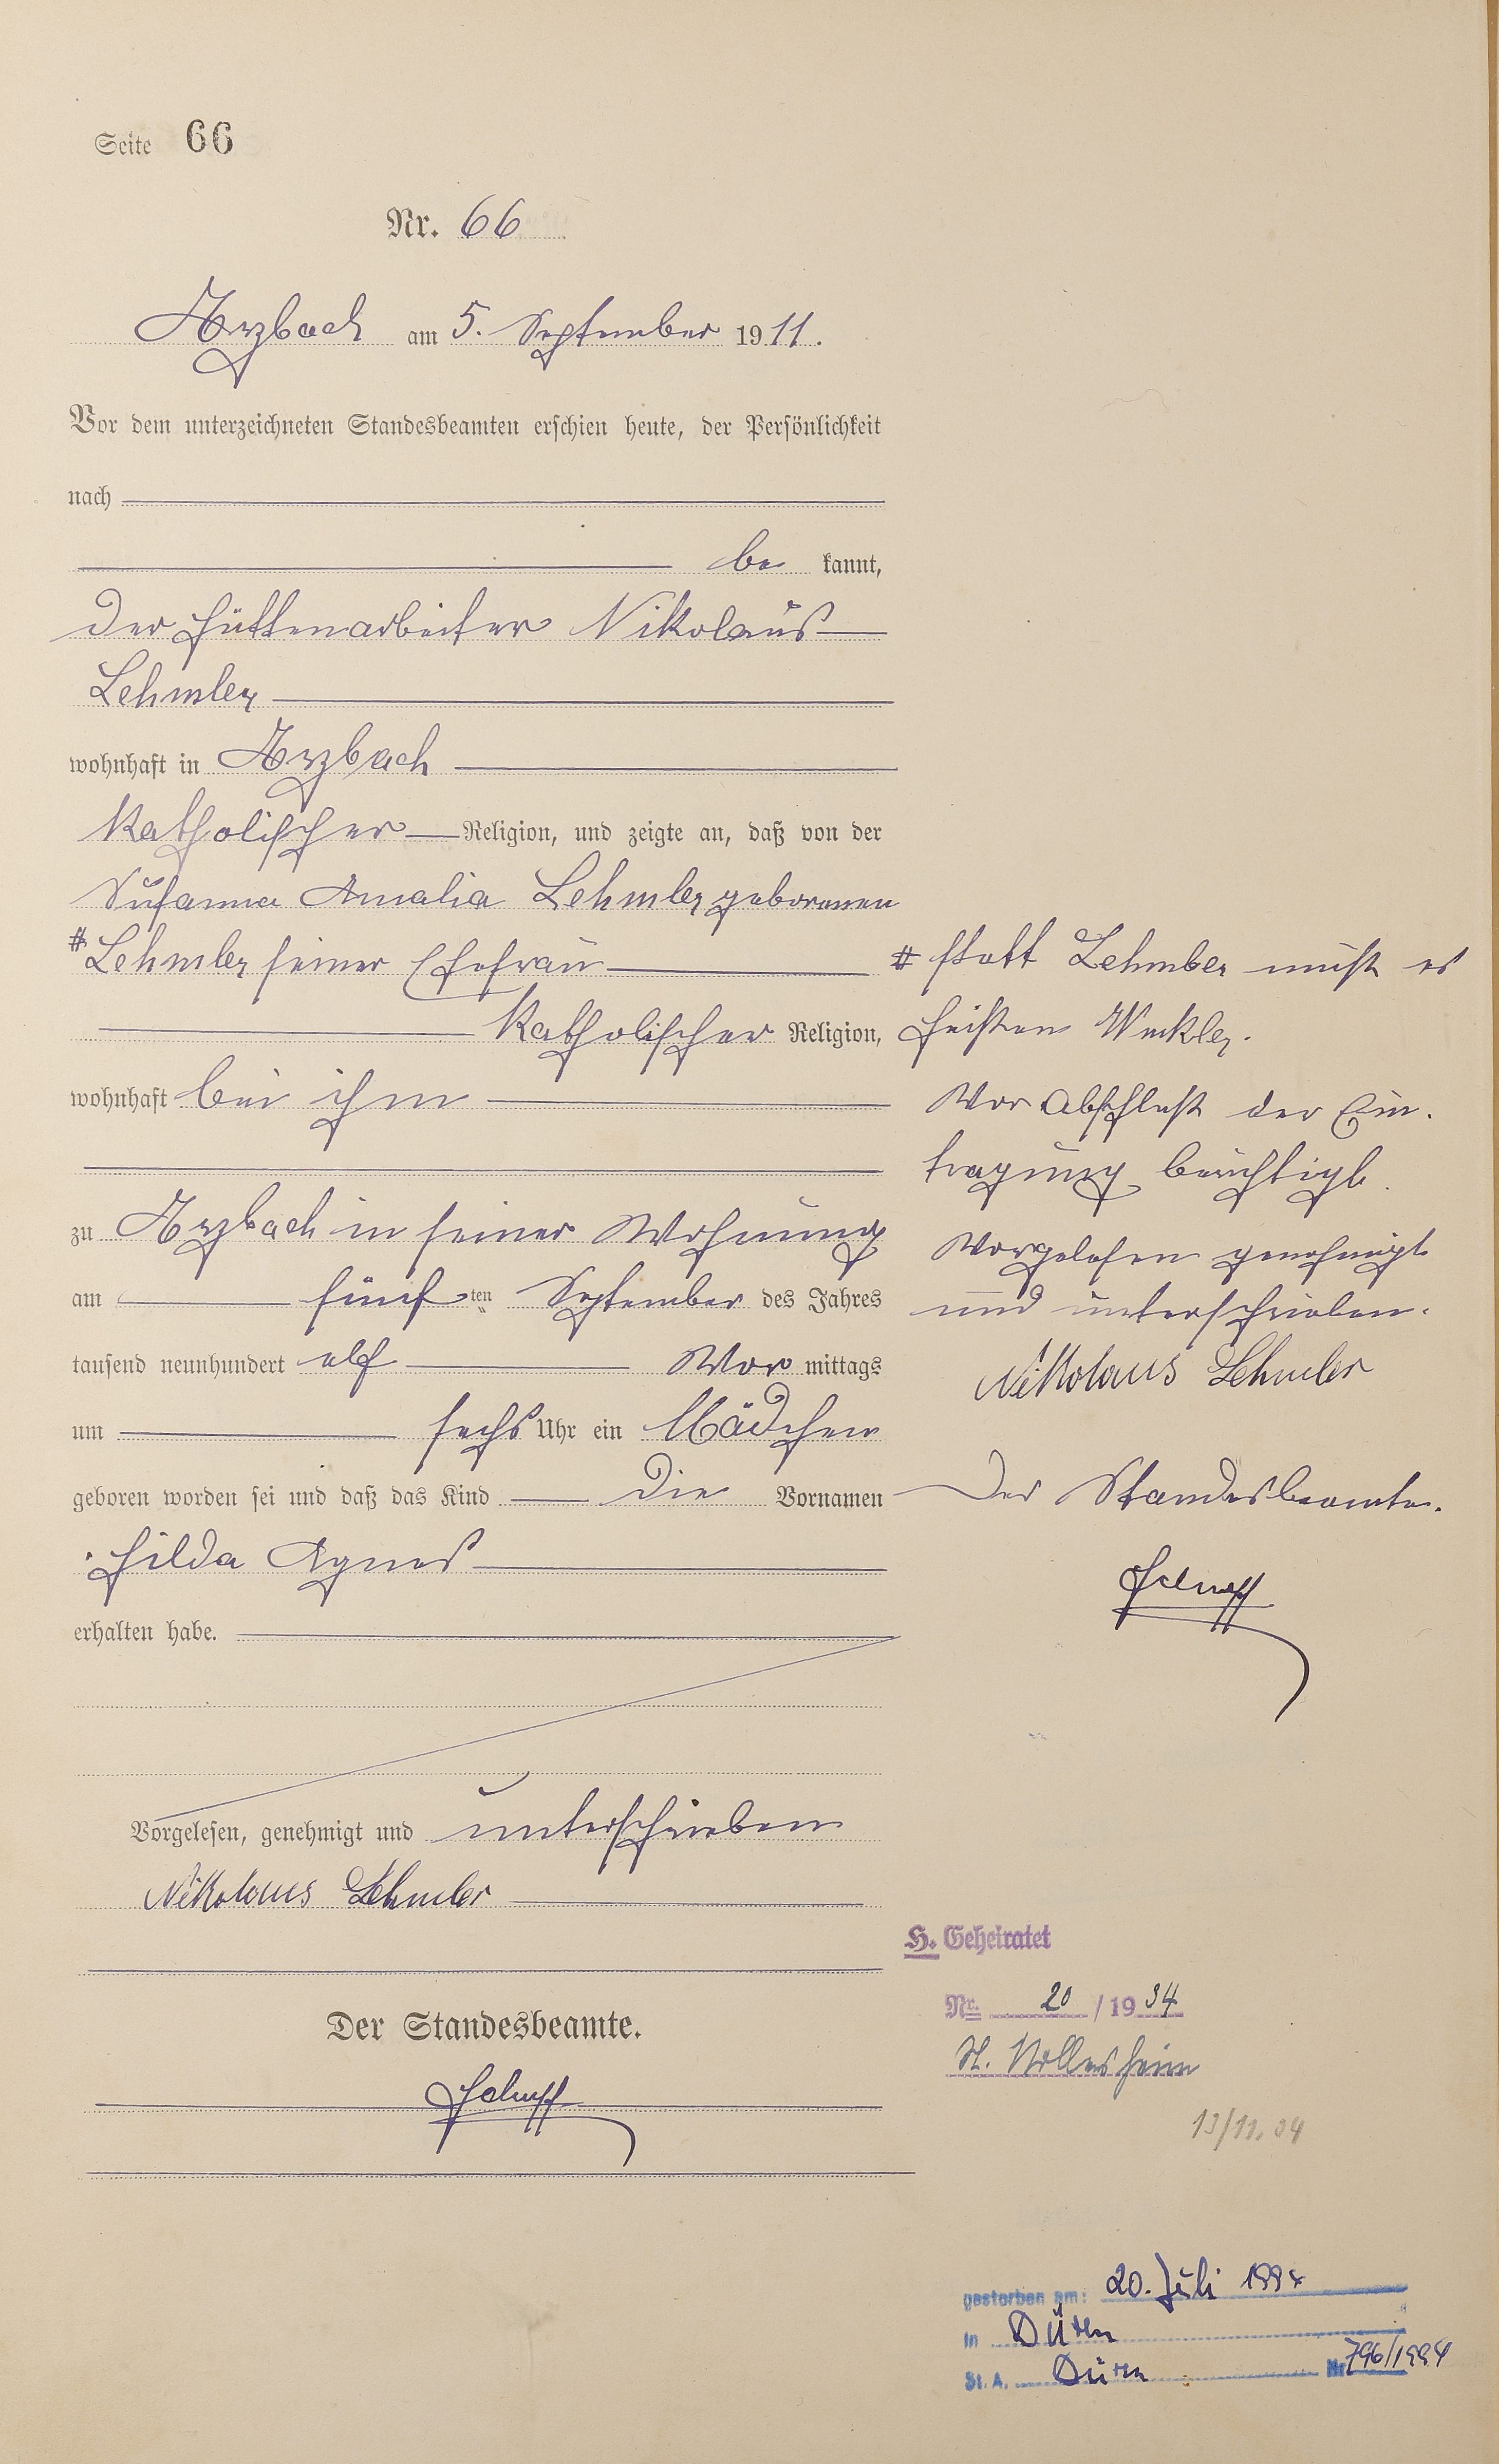 Seite 66
Nr. 66
Arzbach am 5. September 1911.
Vor dem unterzeichneten Standesbeamten erschien heute, der Persönlichkeit
nach
be kannt,
der Hüttenarbeiter Nikolaus
Lehmler
wohnhaft in Arzbach
katholischer Religion, und zeigte an, daß von der
Susanna Amalia Lehmler geborenen
# Lehmler seiner Ehefrau
katholischer Religion,
wohnhaft bei ihm
zu Arzbach in seiner Wohnung
am fünften September des Jahres
tausend neunhundert elf Vor mittags
um sechs Uhr ein Mädchen
geboren worden sei und daß das Kind die Vornamen
Hilda Agnes
erhalten habe.
Vorgelesen, genehmigt und unterschrieben
Nikolaus Lehmler
Der Standesbeamte.
# statt Lehmler muß es
heißen Winkler.
Vor Abschluß der Ein-
tragung berichtigt.
Vorgelesen genehmigt
und unterschrieben.
Nikolaus Lehmler
Der Standesbeamte.
H. Geheiratet
Nr. 20 / 19 34
13/11.34
gestorben am: 20. Juli 1994
in Düren
St. A. Düren Nr. 796/1994